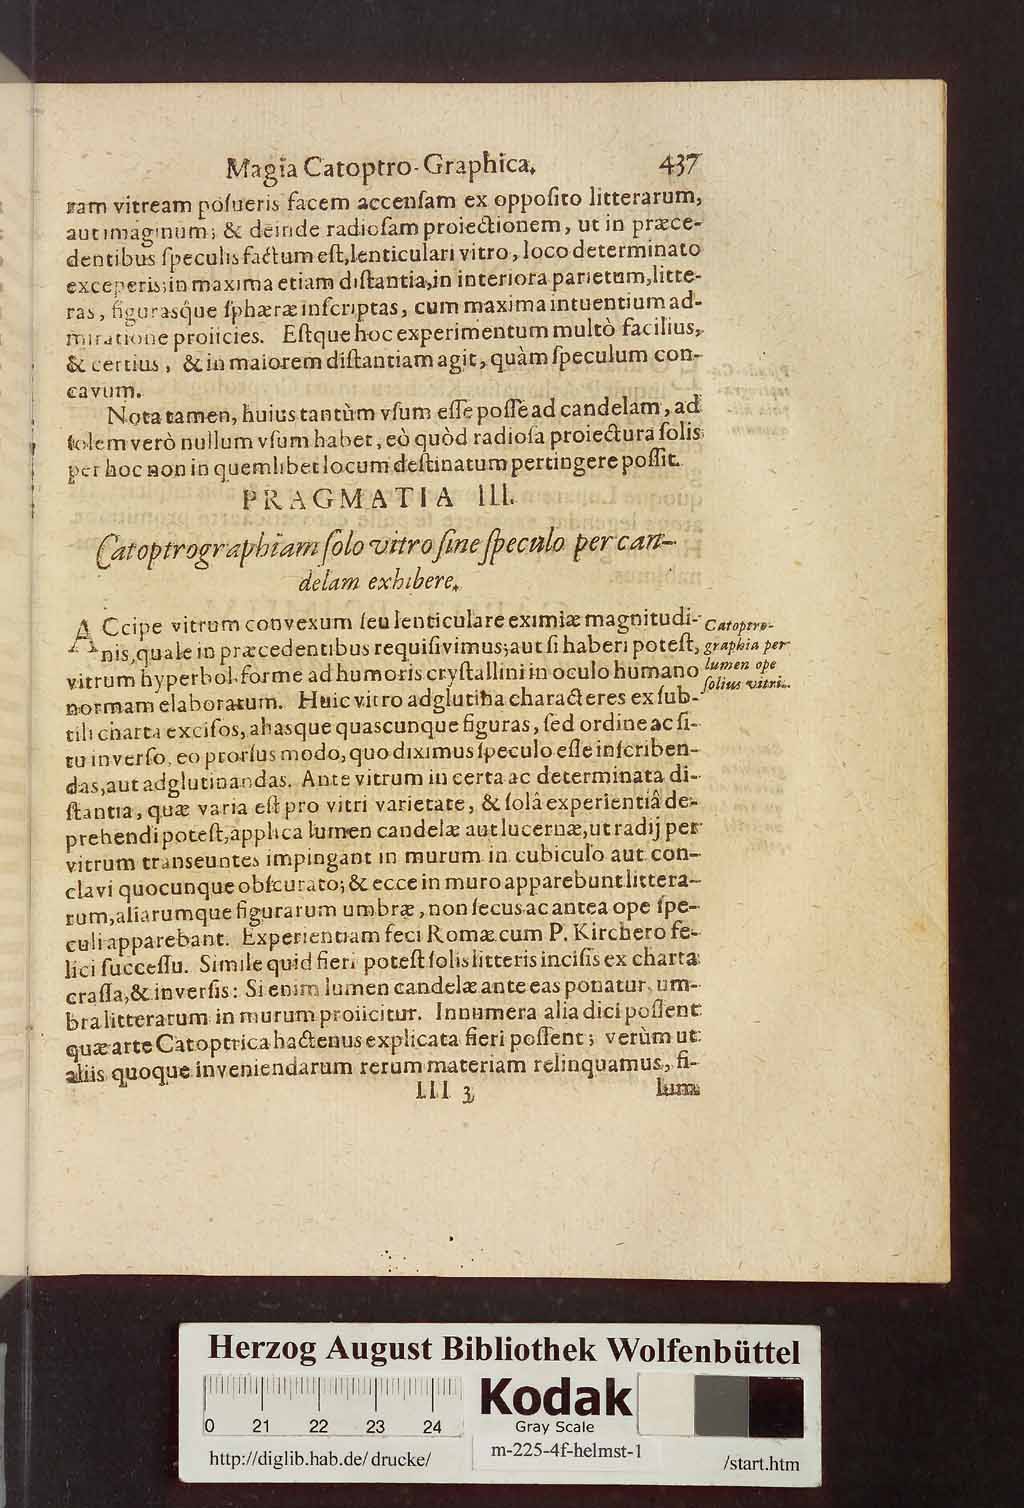 Magia Catoptro-Graphica. 437
ram vitream posueris facem accensam ex opposito litterarum,
aut imaginum; & deinde radiosam proiectionem, ut in præce-
dentibus speculis factum est, lenticulari vitro, loco determinato
exceperis; in maxima etiam distantia, in interiora parietum, litte-
ras, figurasque sphæræ inscriptas, cum maxima intuentium ad-
miratione proiicies. Estque hoc experimentum multò facilius,
& certius, & in maiorem distantiam agit, quàm speculum con-
cavum.
Nota tamen, huius tantùm vsum esse posse ad candelam, ad
solem verò nullum vsum habet, eò quòd radiosa proiectura solis
per hoc non in quemlibet locum destinatum pertingere possit.
PRAGMATIA III.
Catoptrographiam solo vitro sine speculo per can-
delam exhibere.
ACcipe vitrum convexum seu lenticulare eximiæ magnitudi-
nis, quale in præcedentibus requisivimus; aut si haberi potest,
vitrum hyperbol. forme ad humoris crystallini in oculo humano
normam elaboratum. Huic vitro adglutina characteres ex sub-
tili charta excisos, aliasque quascunque figuras, sed ordine ac si-
tu inverso, eo prorsus modo, quo diximus speculo esse inscriben-
das, aut adglutinandas. Ante vitrum in certa ac determinata di-
stantia, quæ varia est pro vitri varietate, & solâ experientiâ de-
prehendi potest, applica lumen candelæ aut lucernæ, ut radij per
vitrum transeuntes impingant in murum in cubiculo aut con-
clavi quocunque obscurato; & ecce in muro apparebunt littera-
rum, aliarumque figurarum umbræ, non secus ac antea ope spe-
culi apparebant. Experientiam feci Romæ cum P. Kirchero fe-
lici successu. Simile quid fieri potest solis litteris incisis ex charta
crassa, & inversis: Si enim lumen candelæ ante eas ponatur, um-
bra litterarum in murum proiicitur. Innumera alia dici possent
quæ arte Catoptrica hactenus explicata fieri possent; verùm ut
aliis quoque inveniendarum rerum materiam relinquamus, fi-
Lll 3 lum
Catoptro-
graphia per
lumen ope
solius vitri.
Herzog August Bibliothek Wolfenbüttel
0 21 22 23 24
Kodak
Gray Scale
m-225-4f-helmst-1
http://diglib.hab.de/drucke/ /start.htm